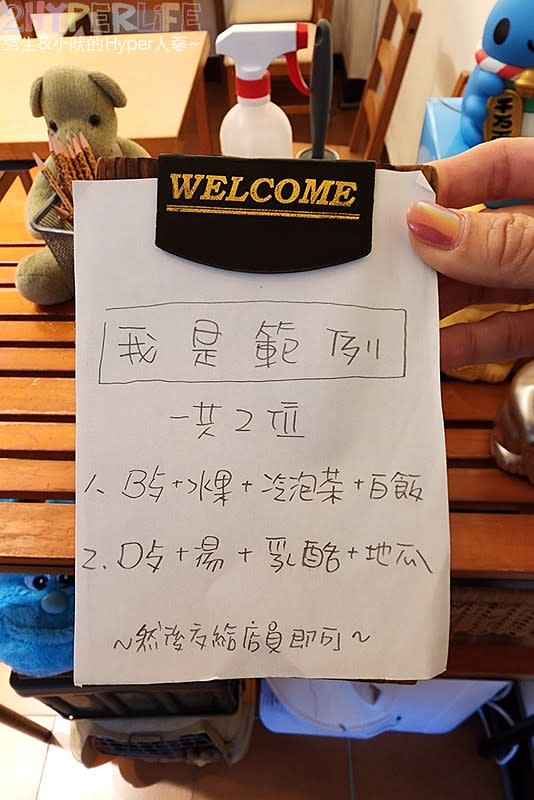 2HYPERLIFE
弥生&小呋的Hyper人蔘~
WELCOME
我是範例
一共2位
1. B好+水果+冷泡茶+白飯
2. D好+湯+乳酪+地瓜
~然後交給店員即可~